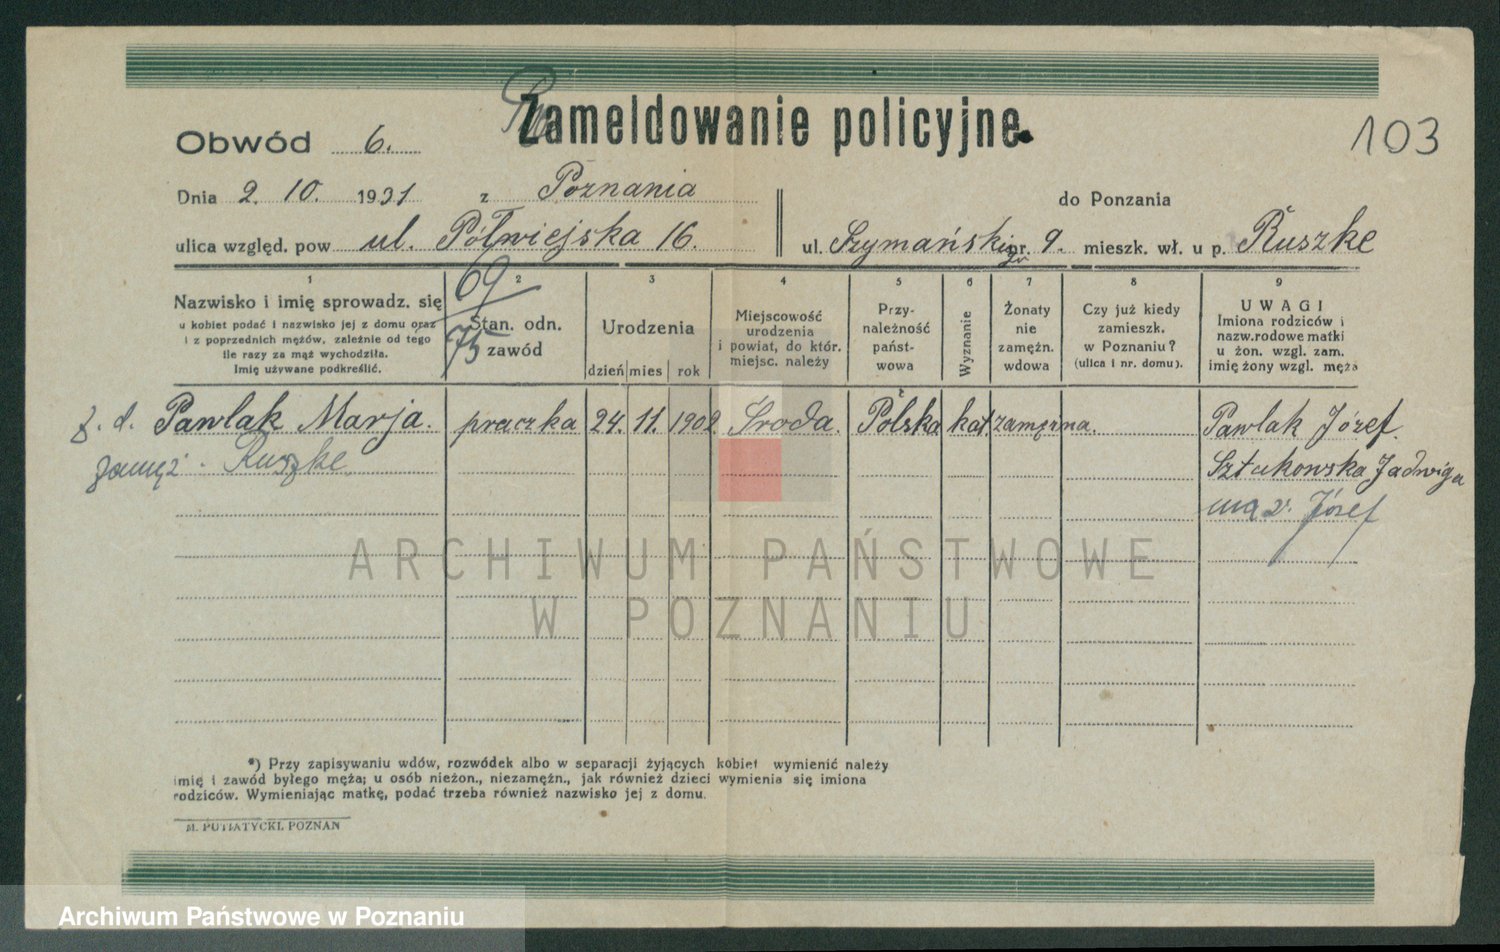 Zameldowanie policyjne
103
Obwód 6.
Dnia 2. 10. 1931 z Poznania do Ponzania
ulica względ. pow ul. Półwiejska 16. ul. Szymańskiego nr. 9. mieszk. wł. u p. Ruszke
1 2 3 4 5 6 7 8 9
69
75
Nazwisko i imię sprowadz. się
u kobiet podać i nazwisko jej z domu oraz
i z poprzednich mężów, zależnie od tego
ile razy za mąż wychodziła.
Imię używane podkreślić.
Stan. odn.
zawód
Urodzenia
dzień mies rok
Miejscowość
urodzenia
i powiat, do któr.
miejsc. należy
Przy-
należność
państ-
wowa
Wyznanie
Żonaty
nie
zamężn.
wdowa
Czy już kiedy
zamieszk.
w Poznaniu?
(ulica i nr. domu).
UWAGI
Imiona rodziców i
nazw.rodowe matki
u żon. wzgl. zam.
imię żony wzgl. męża
z. d. Pawlak Marja. praczka 24. 11. 1902. Środa. Polska kat. zamężna. Pawlak Józef.
zamęż. Ruszke Sztukowska Jadwiga
mąż. Józef
ARCHIWUM PAŃSTWOWE
W POZNANIU
*) Przy zapisywaniu wdów, rozwódek albo w separacji żyjących kobiet wymienić należy
imię i zawód byłego męża; u osób nieżon., niezamężn., jak również dzieci wymienia się imiona
rodziców. Wymieniając matkę, podać trzeba również nazwisko jej z domu.
M. PUTIATYCKI, POZNAŃ
Archiwum Państwowe w Poznaniu